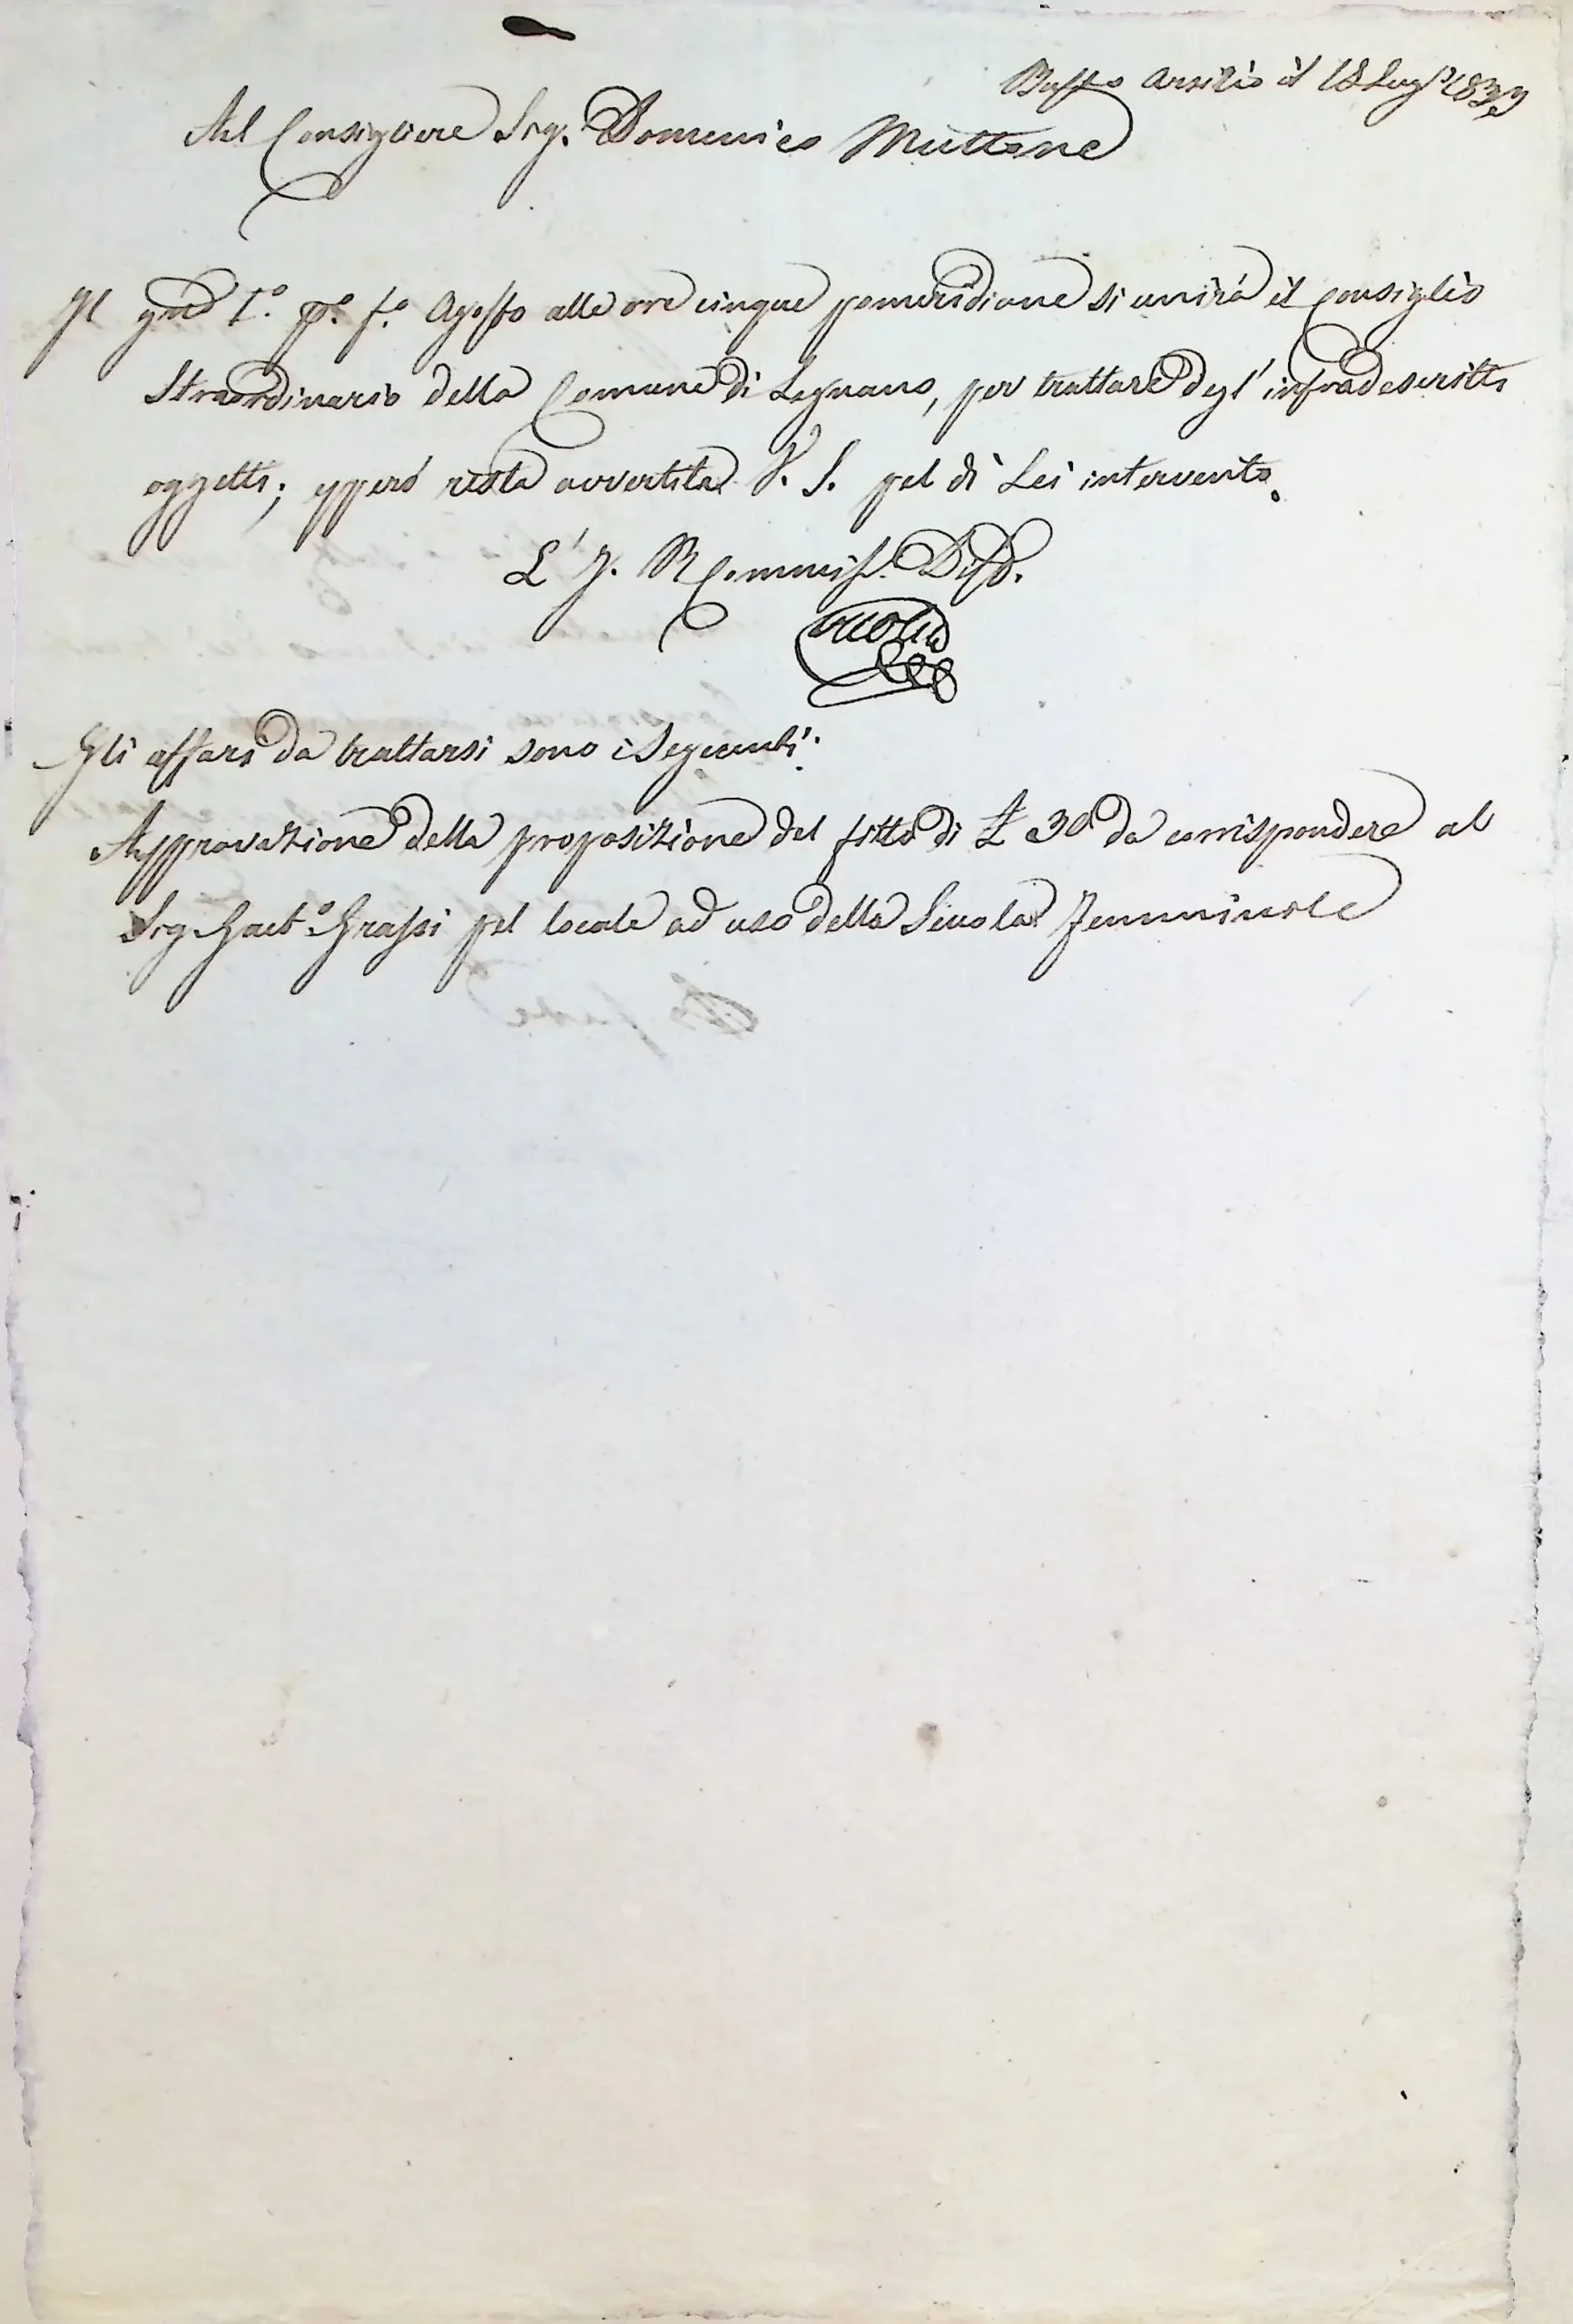 Busto Arsizio il 18 Lug.º 1833
Al Consigliere Sig.r Domenico Muttone
Il gno 1.º p.º f.º Agosto alle ore cinque pomeridiane si unirà il Consiglio
Straordinario della Comune di Legnano, per trattare degl' infradescritti
oggetti; epperó resta avvertita V. S. pel di Lei intervento.
L' I. R. Commiss. Dist.
Gli affari da trattarsi sono i Seguenti.
Approvazione della proposizione del fitto di £ 30 da corrispondere al
Sig. Gaet.º Grassi pel locale ad uso della Scuola Femminile